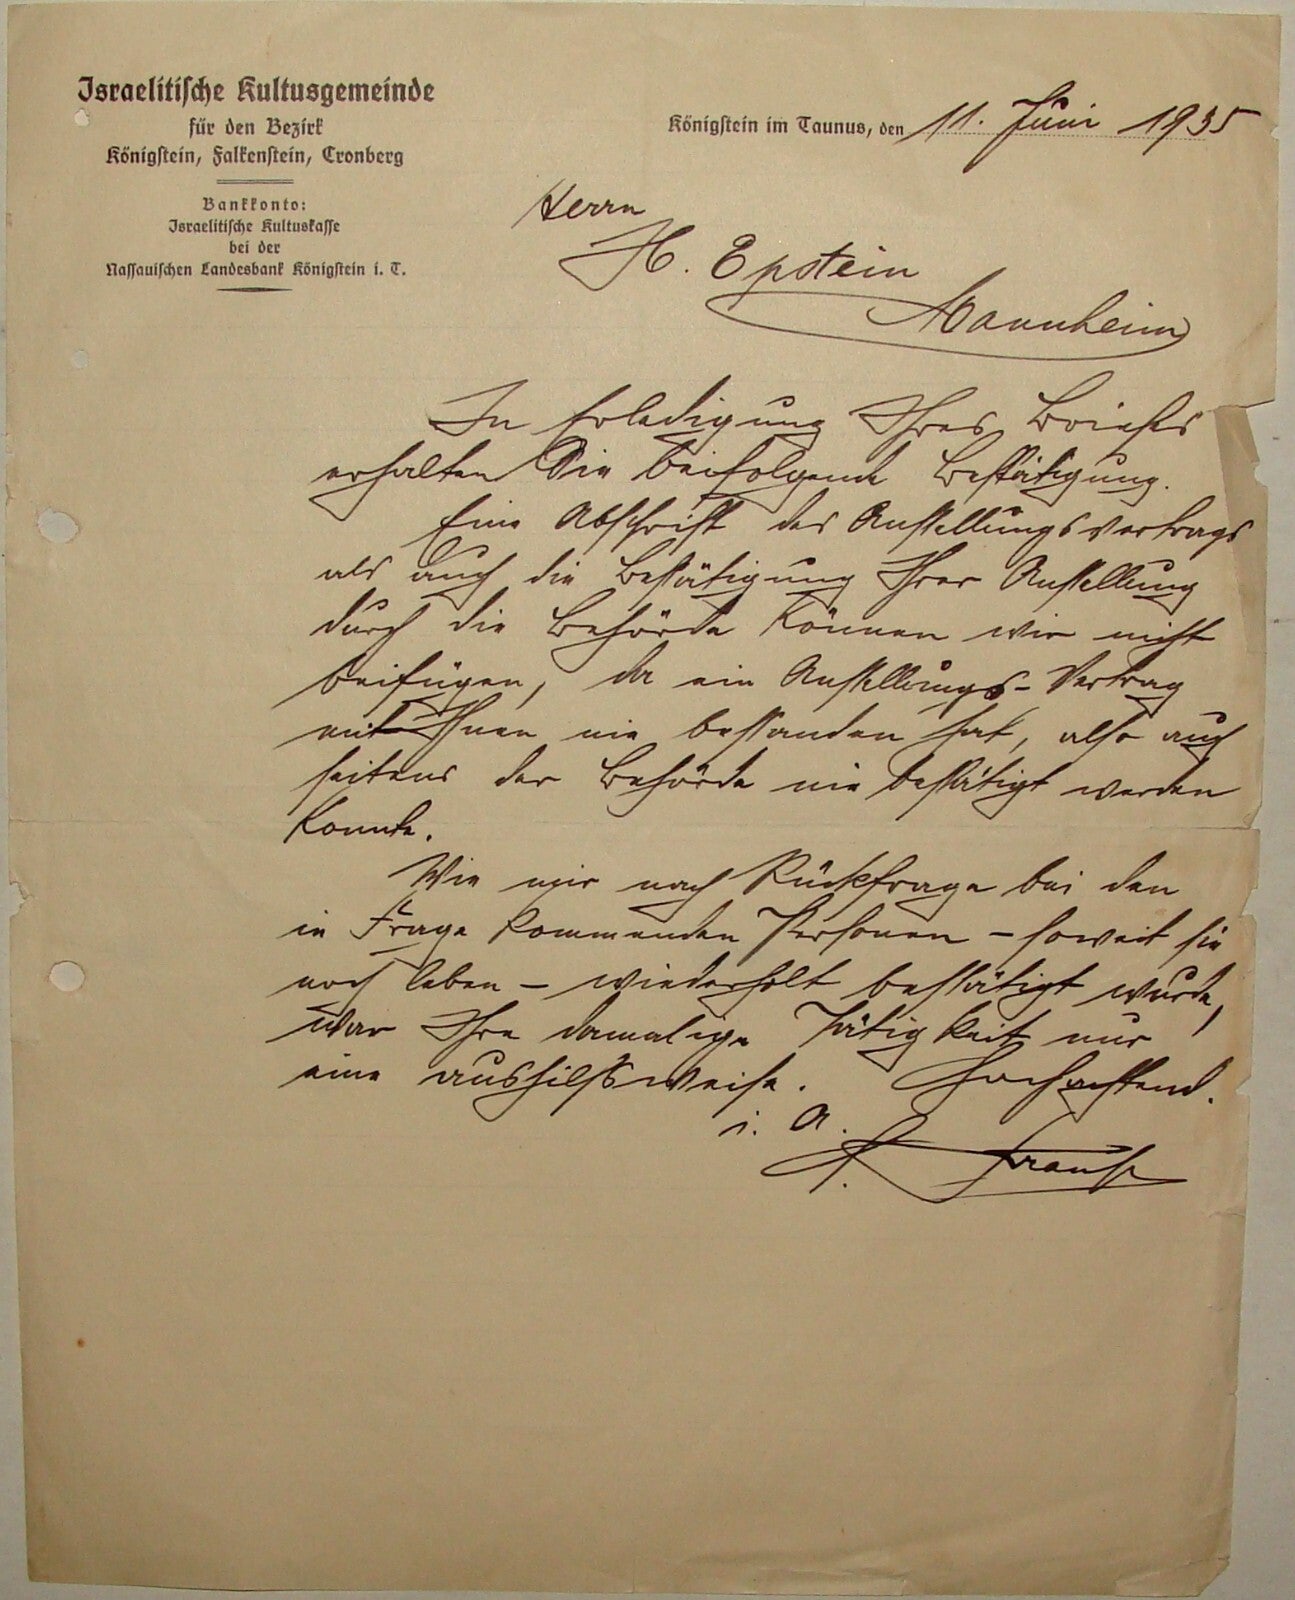 Israelitische Kultusgemeinde
für den Bezirk
Königstein, Falkenstein, Cronberg
Bankkonto:
Israelitische Kultuskasse
bei der
Nassauischen Landesbank Königstein i. T.
Königstein im Taunus, den 11. Juni 1935
Herrn
H. Epstein
Mannheim
In Erledigung Ihres Briefes
erhalten Sie beifolgende Bestätigung.
Eine Abschrift des Anstellungsvertrags
als auch die Bestätigung Ihrer Anstellung
durch die Behörde können wir nicht
beifügen, da ein Anstellungs-Vertrag
mit Ihnen nie bestanden hat, also auch
seitens der Behörde nie bestätigt werden
konnte.
Wie mir nach Rückfrage bei den
in Frage kommenden Personen - soweit sie
noch leben - wiederholt bestätigt wurde,
war Ihre damalige Tätigkeit nur
eine aushilfsweise. Hochachtend.
i. A.